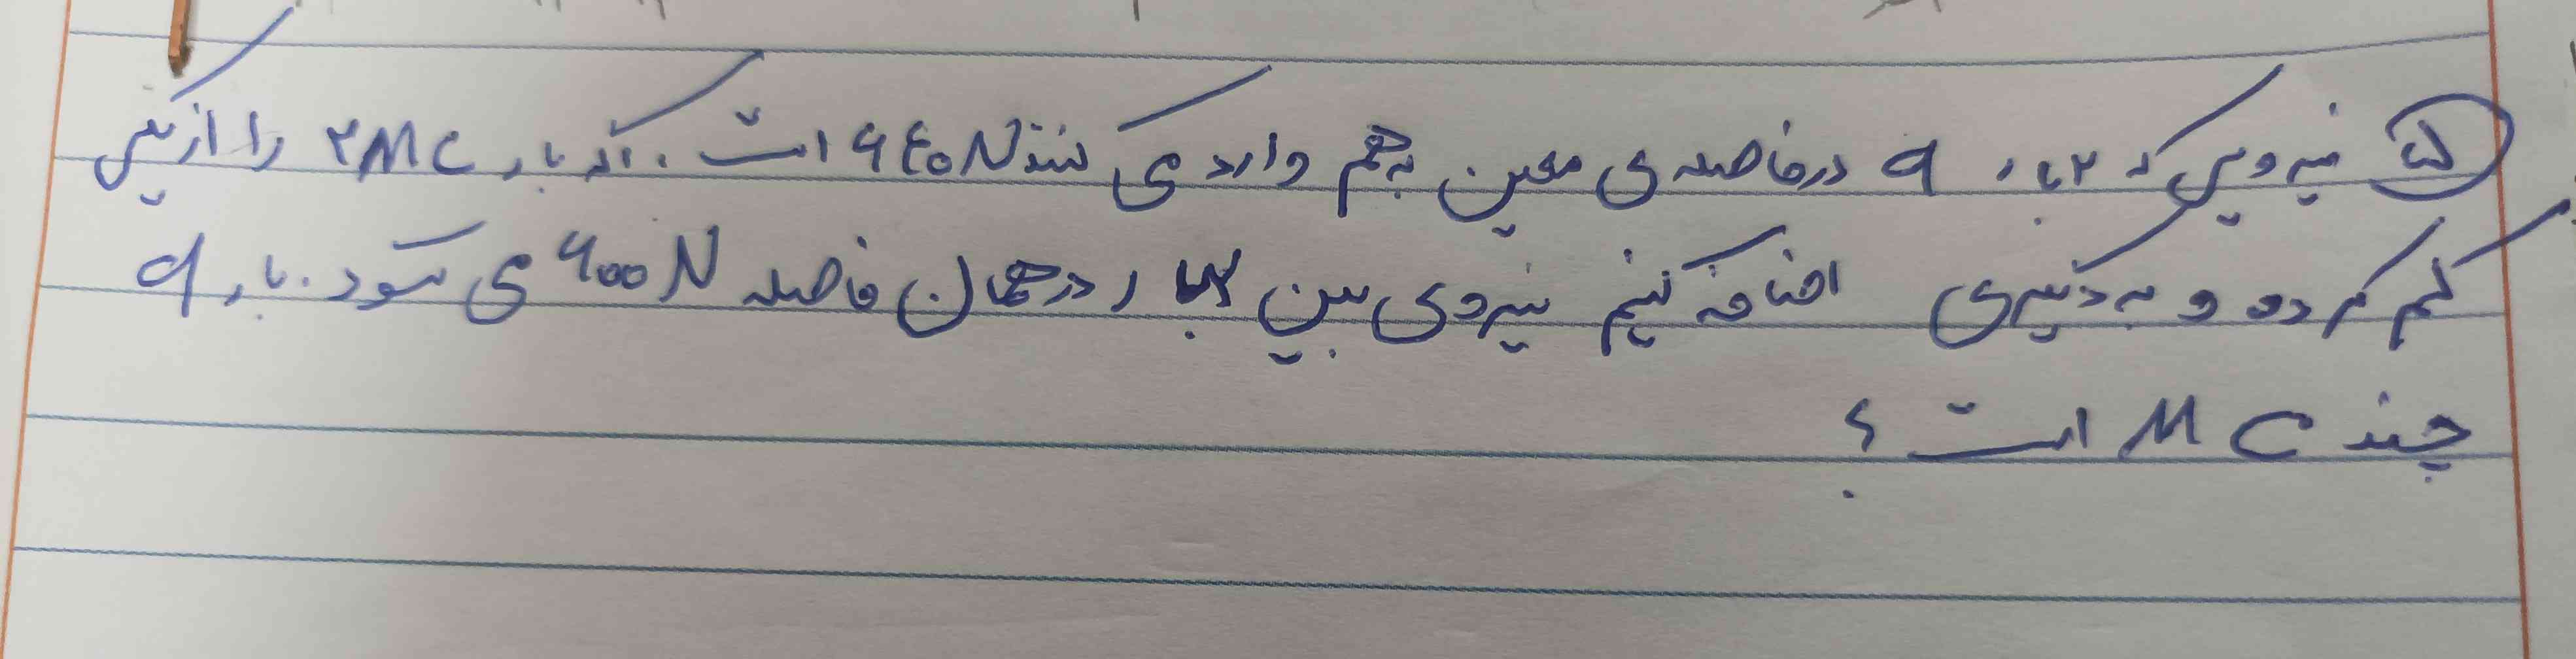 ۵ نیرویی که ۲ بار q در فاصله ی معین به هم وارد می کنند ۶۴۰N است. اگر بار ۲MC را از یکی
کم کرده و به دیگری اضافه کنیم نیروی بین ۲ بار در همان فاصله ۶۰۰N می شود. بار q
چند MC است ؟